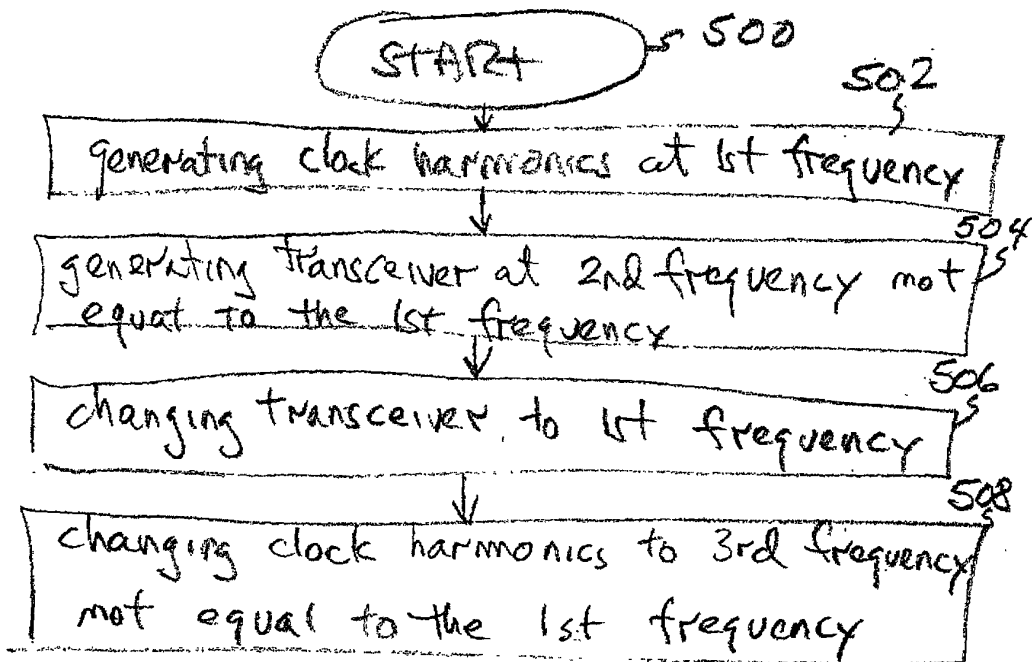 START 500
502
generating clock harmonics at 1st frequency
504
generating transceiver at 2nd frequency not
equal to the 1st frequency
506
changing transceiver to 1st frequency
508
changing clock harmonics to 3rd frequency
not equal to the 1st frequency